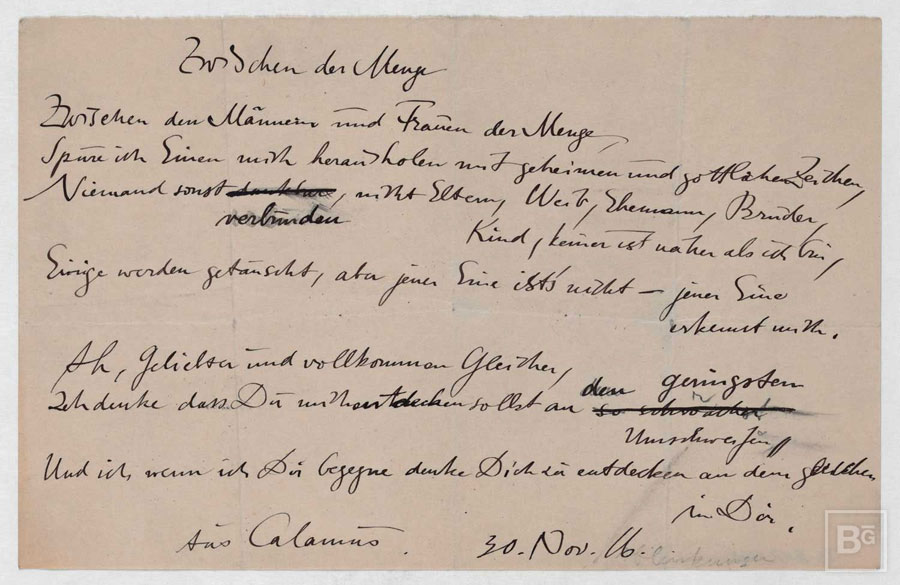 Zwischen der Menge
Zwischen den Männern und Frauen der Menge,
Spüre ich Einen mich herausholen mit geheimen und göttlichen Zeichen,
Niemand sonst, nicht Eltern, Weib, Ehemann, Bruder,
verbunden
Kind, keiner ist näher als ich bin,
Einige werden getäuscht, aber jener Eine ist's nicht — jener Eine
erkennt mich.
Ah, Geliebter und vollkommen Gleicher,
den geringsten
Ich denke dass Du mich entdecken sollst an so schwachen
Umschweifen
Und ich wenn ich Dir begegne denke Dich zu entdecken an dem gleichen
in Dir.
Aus Calamus.
30. Nov. 16.
BG